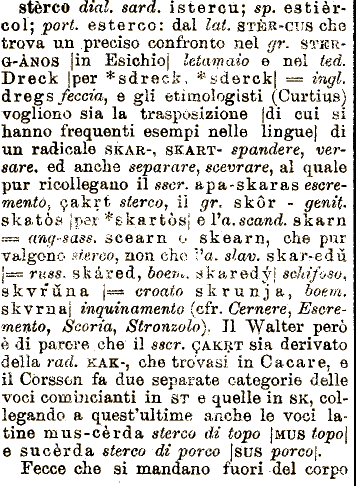 stèrco dial. sard. istercu; sp. estièr-
col; port. esterco: dal lat. STÈR-CUS che
trova un preciso confronto nel gr. STER-
G-ÀNOS [in Esichio] letamaio e nel ted.
Dreck [per *sdreck, *sderck] = ingl.
dregs feccia, e gli etimologisti (Curtius)
vogliono sia la trasposizione [di cui si
hanno frequenti esempi nelle lingue] di
un radicale SKAR-, SKART- spandere, ver-
sare, ed anche separare, scevrare, al quale
pur ricollegano il sscr. apa-skaras escre-
mento, çakṛt sterco, il gr. skôr - genit.
skatòs [per *skartòs] e l'a. scand. skarn
= ang-sass. scearn o skearn, che pur
valgono sterco, non che l'a. slav. skar-edŭ
[= russ. skáred, boem. skaredý] schifoso,
skvrŭna [= croato skrunja, boem.
skvrna] inquinamento (cfr. Cernere, Escre-
mento, Scoria, Stronzolo). Il Walter però
è di parere che il sscr. ÇAKṚT sia derivato
della rad. KAK-, che trovasi in Cacare, e
il Corssen fa due separate categorie delle
voci comincianti in ST e quelle in SK, col-
legando a quest'ultime anche le voci la-
tine mus-cèrda sterco di topo [MUS topo]
e sucèrda sterco di porco [SUS porco].
Fecce che si mandano fuori del corpo